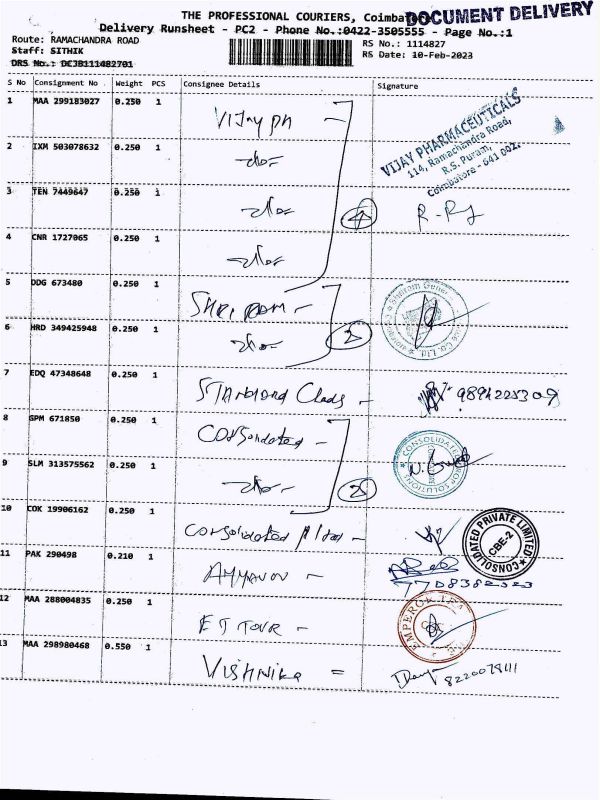 THE PROFESSIONAL COURIERS, Coimbatore
DOCUMENT DELIVERY
Delivery Runsheet - PC2 - Phone No.:0422-3505555 - Page No.:1
Route: RAMACHANDRA ROAD
RS No.: 1114827
Staff: SITHIK
RS Date: 10-Feb-2023
DRS No.: DCJB111482701
S No Consignment No Weight PCS Consignee Details Signature
1 MAA 299183027 0.250 1 Vijay ph -
VIJAY PHARMACEUTICALS
114, Ramachandra Road,
R.S. Puram,
Coimbatore - 641 002.
2 IXM 503078632 0.250 1 -do-
3 TEN 7449647 0.250 1 -do- 4
4 CNR 1727065 0.250 1 -do-
5 DDG 673480 0.250 1 SHRI RAM -
6 HRD 349425948 0.250 1 -do- 2
7 EDQ 47348648 0.250 1 Standard Chads - 9894225309
8 GPM 671850 0.250 1 Consolidated -
CONSOLIDATED
9 SLM 313575562 0.250 1 -do- 2
10 COK 19906162 0.250 1 Consolidated -
CONSOLIDATED PRIVATE LIMITED
CBE-2
11 PAK 290498 0.210 1
12 MAA 288004835 0.250 1 ET TOUR -
EMPEROR
13 MAA 298980468 0.550 1 Vishnika =